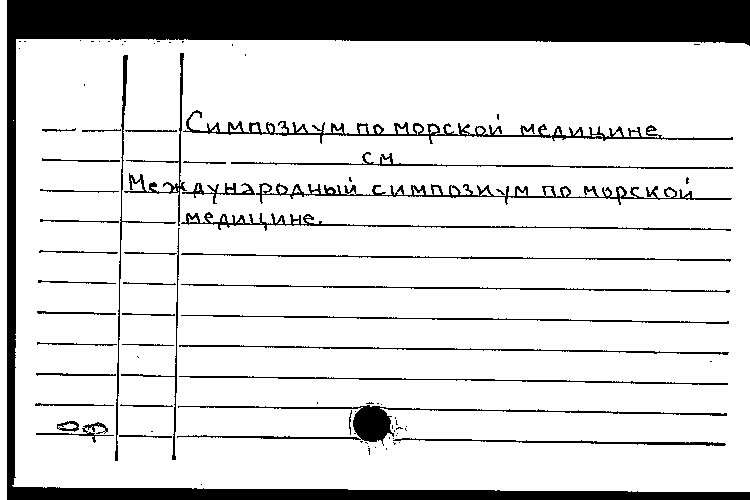 Симпозиум по морской медицине
см.
Международный симпозиум по морской
медицине.
оф